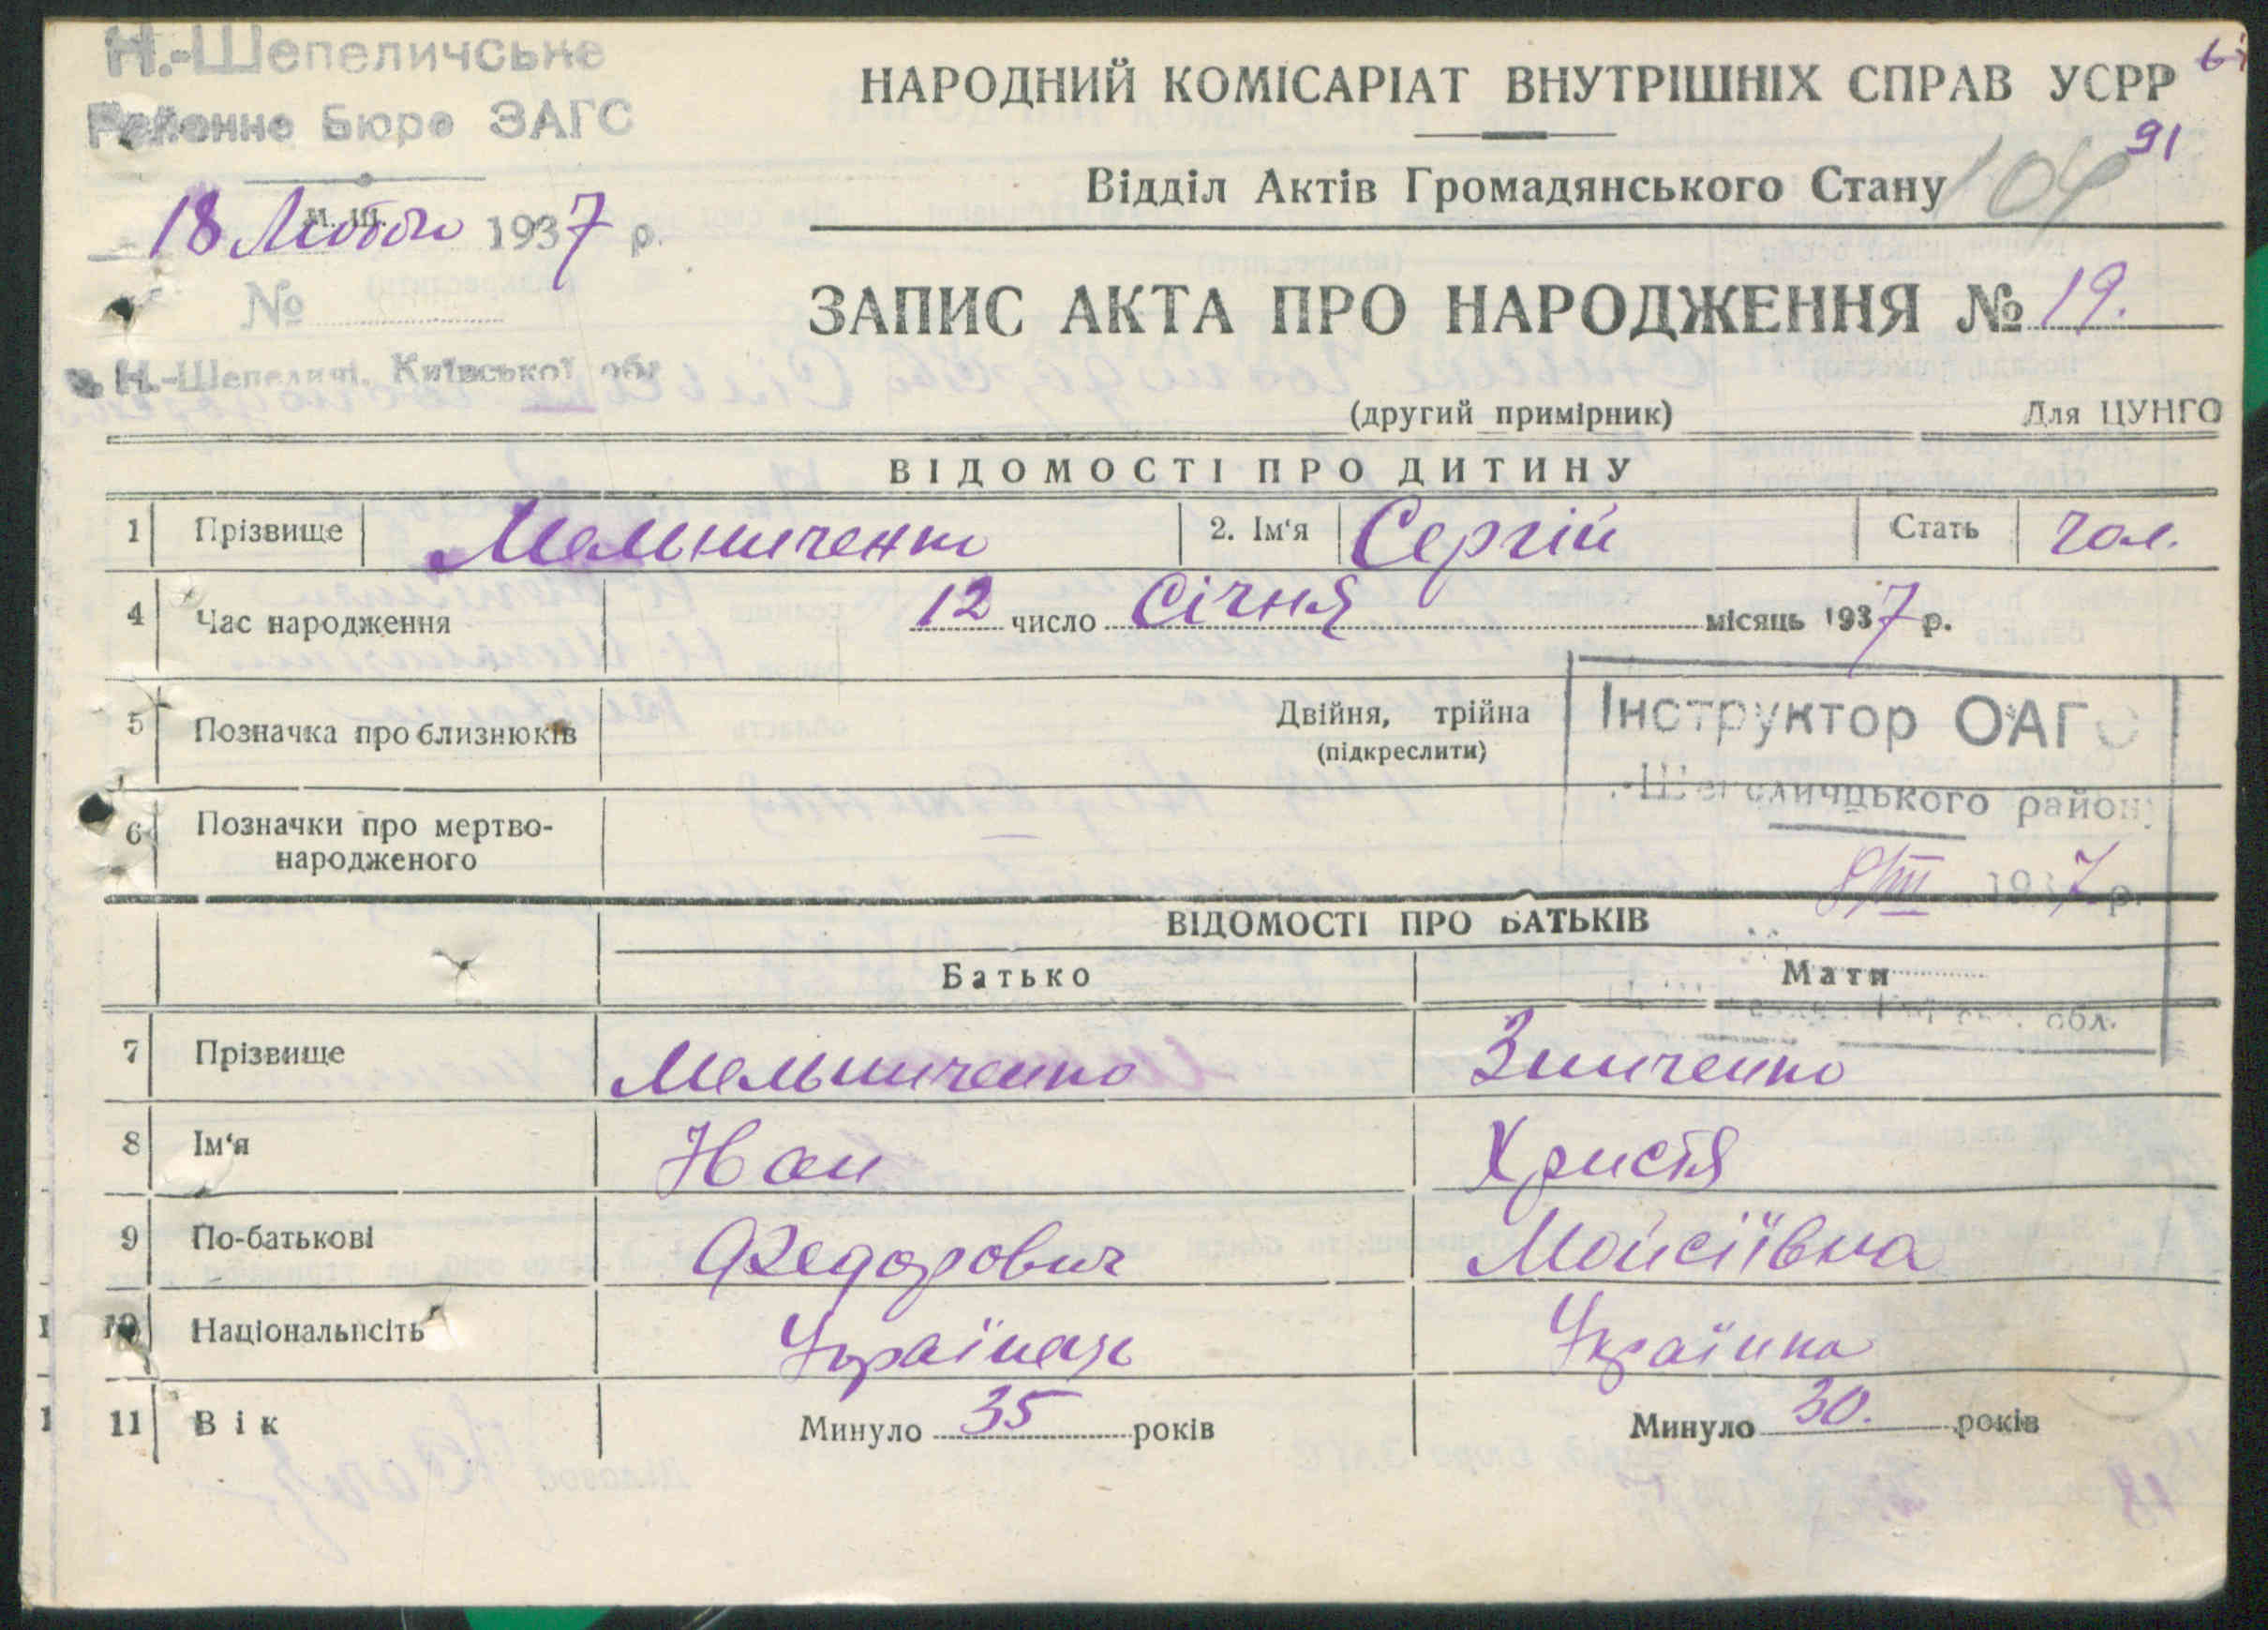 Н.-Шепеличське
Районне Бюро ЗАГС
18 Лютого 1937 р.
№
Н.-Шепеличі, Київської обл
91
104
НАРОДНИЙ КОМІСАРІАТ ВНУТРІШНІХ СПРАВ УСРР
Відділ Актів Громадянського Стану
ЗАПИС АКТА ПРО НАРОДЖЕННЯ № 19.
(другий примірник) Для ЦУНГО
ВІДОМОСТІ ПРО ДИТИНУ
1 Прізвище Мельниченко 2. Ім'я Сергій Стать чол.
4 Час народження 12 число Січня місяць 1937 р.
5 Позначка про близнюків Двійня, трійна
(підкреслити)
Інструктор ОАГС
Шепеличцького району
6 Позначки про мертво-
народженого
8/III 1937 р.
ВІДОМОСТІ ПРО БАТЬКІВ
Батько Мати
обл.
7 Прізвище Мельниченко Зинченко
8 Ім'я Іван Христя
9 По-батькові Федорович Мойсіївна
10 Національнсіть Українець Українка
11 Вік Минуло 35 років Минуло 30. років